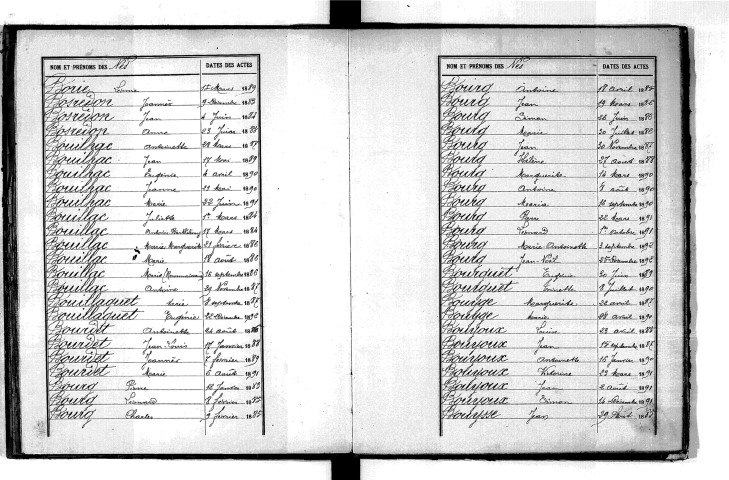 NOM ET PRÉNOMS DES Nés DATES DES ACTES
Borie Louise 17 Mars 1889
Bosredon Jeanne 9 Décembre 1883
Bosredon Jean 4 Juin 1884
Bosredon Anna 23 Juin 1884
Bouilhac Antoinette 29 Mars 1887
Bouilhac Jean 17 Mai 1889
Bouilhac Eugénie 4 avril 1890
Bouilhac Jeanne 21 Mai 1890
Bouilhac Marie 22 Juin 1891
Bouillac Juliette 1er Mars 1884
Bouillac Antoine Barthélemy 17 Mars 1884
Bouillac Marie Marguerite 21 février 1886
Bouillac Marie 18 août 1886
Bouillac Marie 16 septembre 1886
Bouillac Antoine 29 Novembre 1887
Bouillaguet Marie 8 septembre 1887
Bouillaguet Eugénie 22 Décembre 1890
Bourdet Antoinette 24 août 1886
Bourdet Jean Louis 17 Janvier 1888
Bourdet Jeanne 7 février 1889
Bourdet Marie 6 août 1891
Bourg Pierre 12 Janvier 1883
Bourg Léonard 8 février 1883
Bourg Charles 3 février 1885
NOM ET PRÉNOMS DES Nés DATES DES ACTES
Bourg Antoine 18 avril 1885
Bourg Jean 19 Mars 1886
Bourg Simon 26 Juin 1886
Bourg Marie 20 Juillet 1886
Bourg Jean 30 Novembre 1887
Bourg Hélène 27 août 1888
Bourg Marguerite 14 Mars 1890
Bourg Antoine 8 août 1890
Bourg Maria 20 septembre 1890
Bourg Pierre 22 Mars 1891
Bourg Léonard 1er octobre 1891
Bourg Marie Antoinette 3 septembre 1892
Bourg Jean Noël 25 Décembre 1892
Bourguet Eugénie 20 Juin 1889
Bourguet Antoinette 8 Juillet 1890
Bouyge Marguerite 22 avril 1887
Bouyge Marie 28 avril 1890
Bouyjoux Louise 23 avril 1888
Bouyjoux Jean 17 septembre 1887
Bouyjoux Antoinette 16 Janvier 1890
Bouyjoux Victorine 23 Mars 1891
Bouyjoux Jean 2 août 1891
Bouyjoux Simon 14 Décembre 1891
Bouysse Jean 29 août 1883